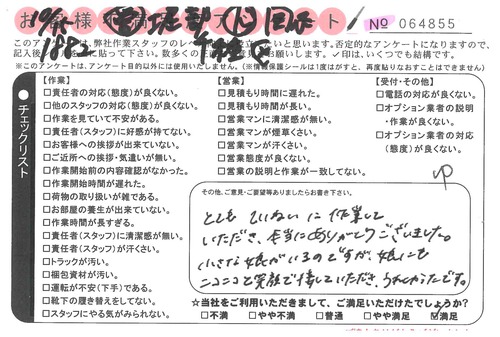 お客様 アンケート No 064855
このアンケートは、弊社作業スタッフのレベ
いと思います。否定的なアンケートになりますので、
願いします。✓印は、いくつでも結構です。
※このアンケートは、アンケート目的以外には使用いたしません。(※情報保護シールは1度はがすと、再度貼りなおすことはできません)
チェックリスト
【作業】
□責任者の対応(態度)が良くない。
□他のスタッフの対応(態度)が良くない。
□作業を見ていて不安がある。
□責任者(スタッフ)に好感が持てない。
□お客様への挨拶が出来ていない。
□ご近所への挨拶・気遣いが無い。
□作業開始前の内容確認がなかった。
□作業開始時間が遅れた。
□荷物の取り扱いが雑である。
□お部屋の養生が出来ていない。
□作業時間が長すぎる。
□責任者(スタッフ)に清潔感が無い。
□責任者(スタッフ)が汗くさい。
□トラックが汚い。
□梱包資材が汚い。
□運転が不安(下手)である。
□靴下の履き替えをしてない。
□スタッフにやる気がみられない。
【営業】
□見積もり時間に遅れた。
□見積もり時間が長い。
□営業マンに清潔感が無い。
□営業マンが煙草くさい。
□営業マンが汗くさい。
□営業態度が良くない。
□営業の説明と作業が一致してない。
【受付・その他】
□電話の対応が良くない。
□オプション業者の説明
・作業が良くない。
□オプション業者の対応
(態度)が良くない。
その他、ご意見・ご要望等ありましたらお書き下さい。
とてもていねいに作業して
いただき、本当にありがとうございました。
小さな娘がいるのですが、娘にも
ニコニコと笑顔で接していただき、うれしかったです。
☆当社をご利用いただきまして、ご満足いただけたでしょうか?
□不満 □やや不満 □普通 □やや満足 ☑満足